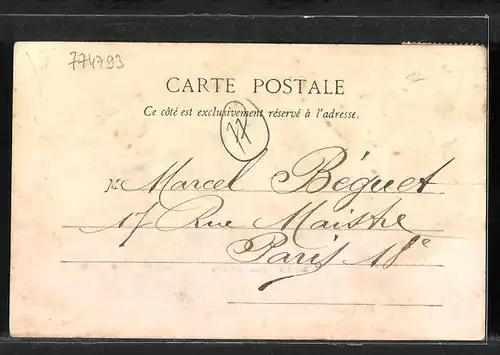 774793
CARTE POSTALE
Ce côté est exclusivement réservé à l'adresse.
77
M. Marcel Béguet
17 Rue Maistre
Paris 18e